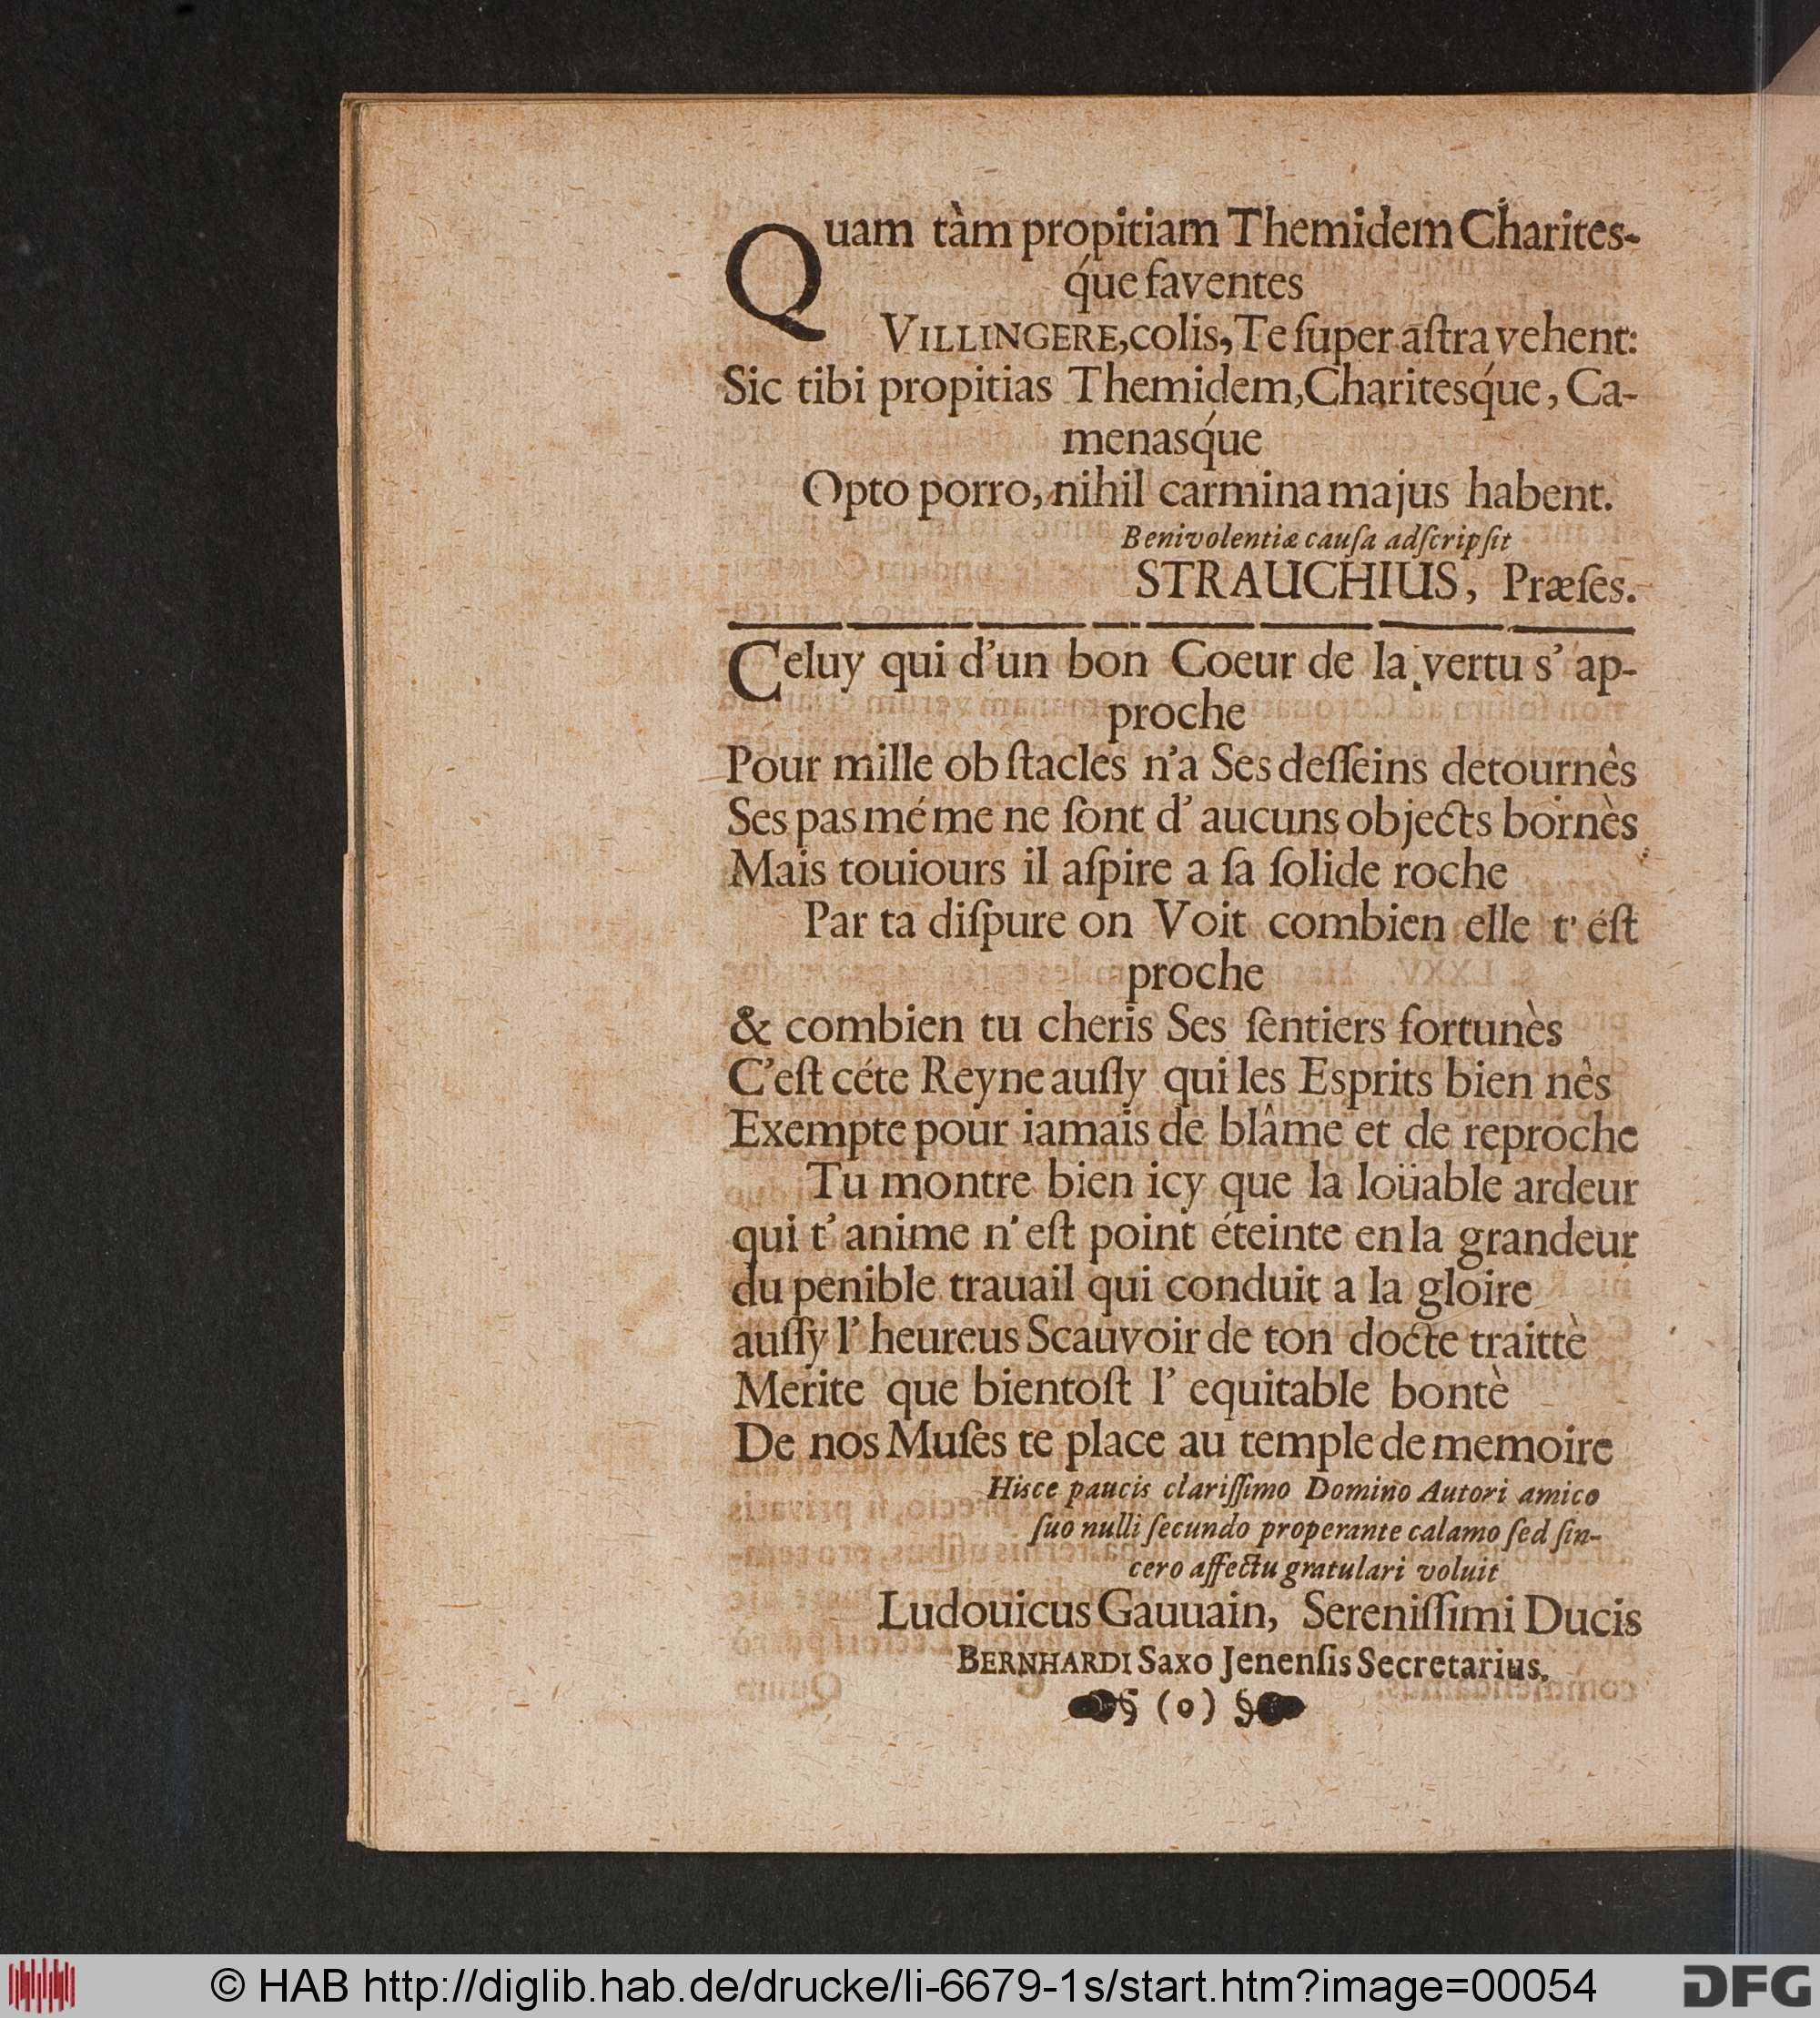 Quam tàm propitiam Themidem Charites-
q́ue faventes
VILLINGERE, colis, Te ſuper aſtra vehent:
Sic tibi propitias Themidem, Charitesq́ue, Ca-
menasq́ue
Opto porro, nihil carmina majus habent.
Benivolentiæ cauſa adſcripſit
STRAUCHIUS, Præſes.
Celuy qui d'un bon Coeur de la vertu s' ap-
proche
Pour mille obſtacles n'a Ses deſſeins detournês
Ses pas méme ne ſont d' aucuns objects bornès
Mais touiours il aſpire a ſa ſolide roche
Par ta diſpure on Voit combien elle t' éſt
proche
& combien tu cheris Ses ſentiers fortunès
C'eſt céte Reyne auſſy qui les Esprits bien nês
Exempte pour iamais de blâme et de reproche
Tu montre bien icy que la loüable ardeur
qui t' anime n' eſt point éteinte en la grandeur
du penible trauail qui conduit a la gloire
auſſy l' heureus Scauvoir de ton docte traittè
Merite que bientoſt l' equitable bontè
De nos Muſes te place au temple de memoire
Hisce paucis clariſſimo Domino Autori amico
ſuo nulli ſecundo properante calamo ſed ſin-
cero affectu gratulari voluit
Ludouicus Gauuain, Sereniſſimi Ducis
BERNHARDI Saxo Jenenſis Secretarius.
§ (o) §
© HAB http://diglib.hab.de/drucke/li-6679-1s/start.htm?image=00054
DFG